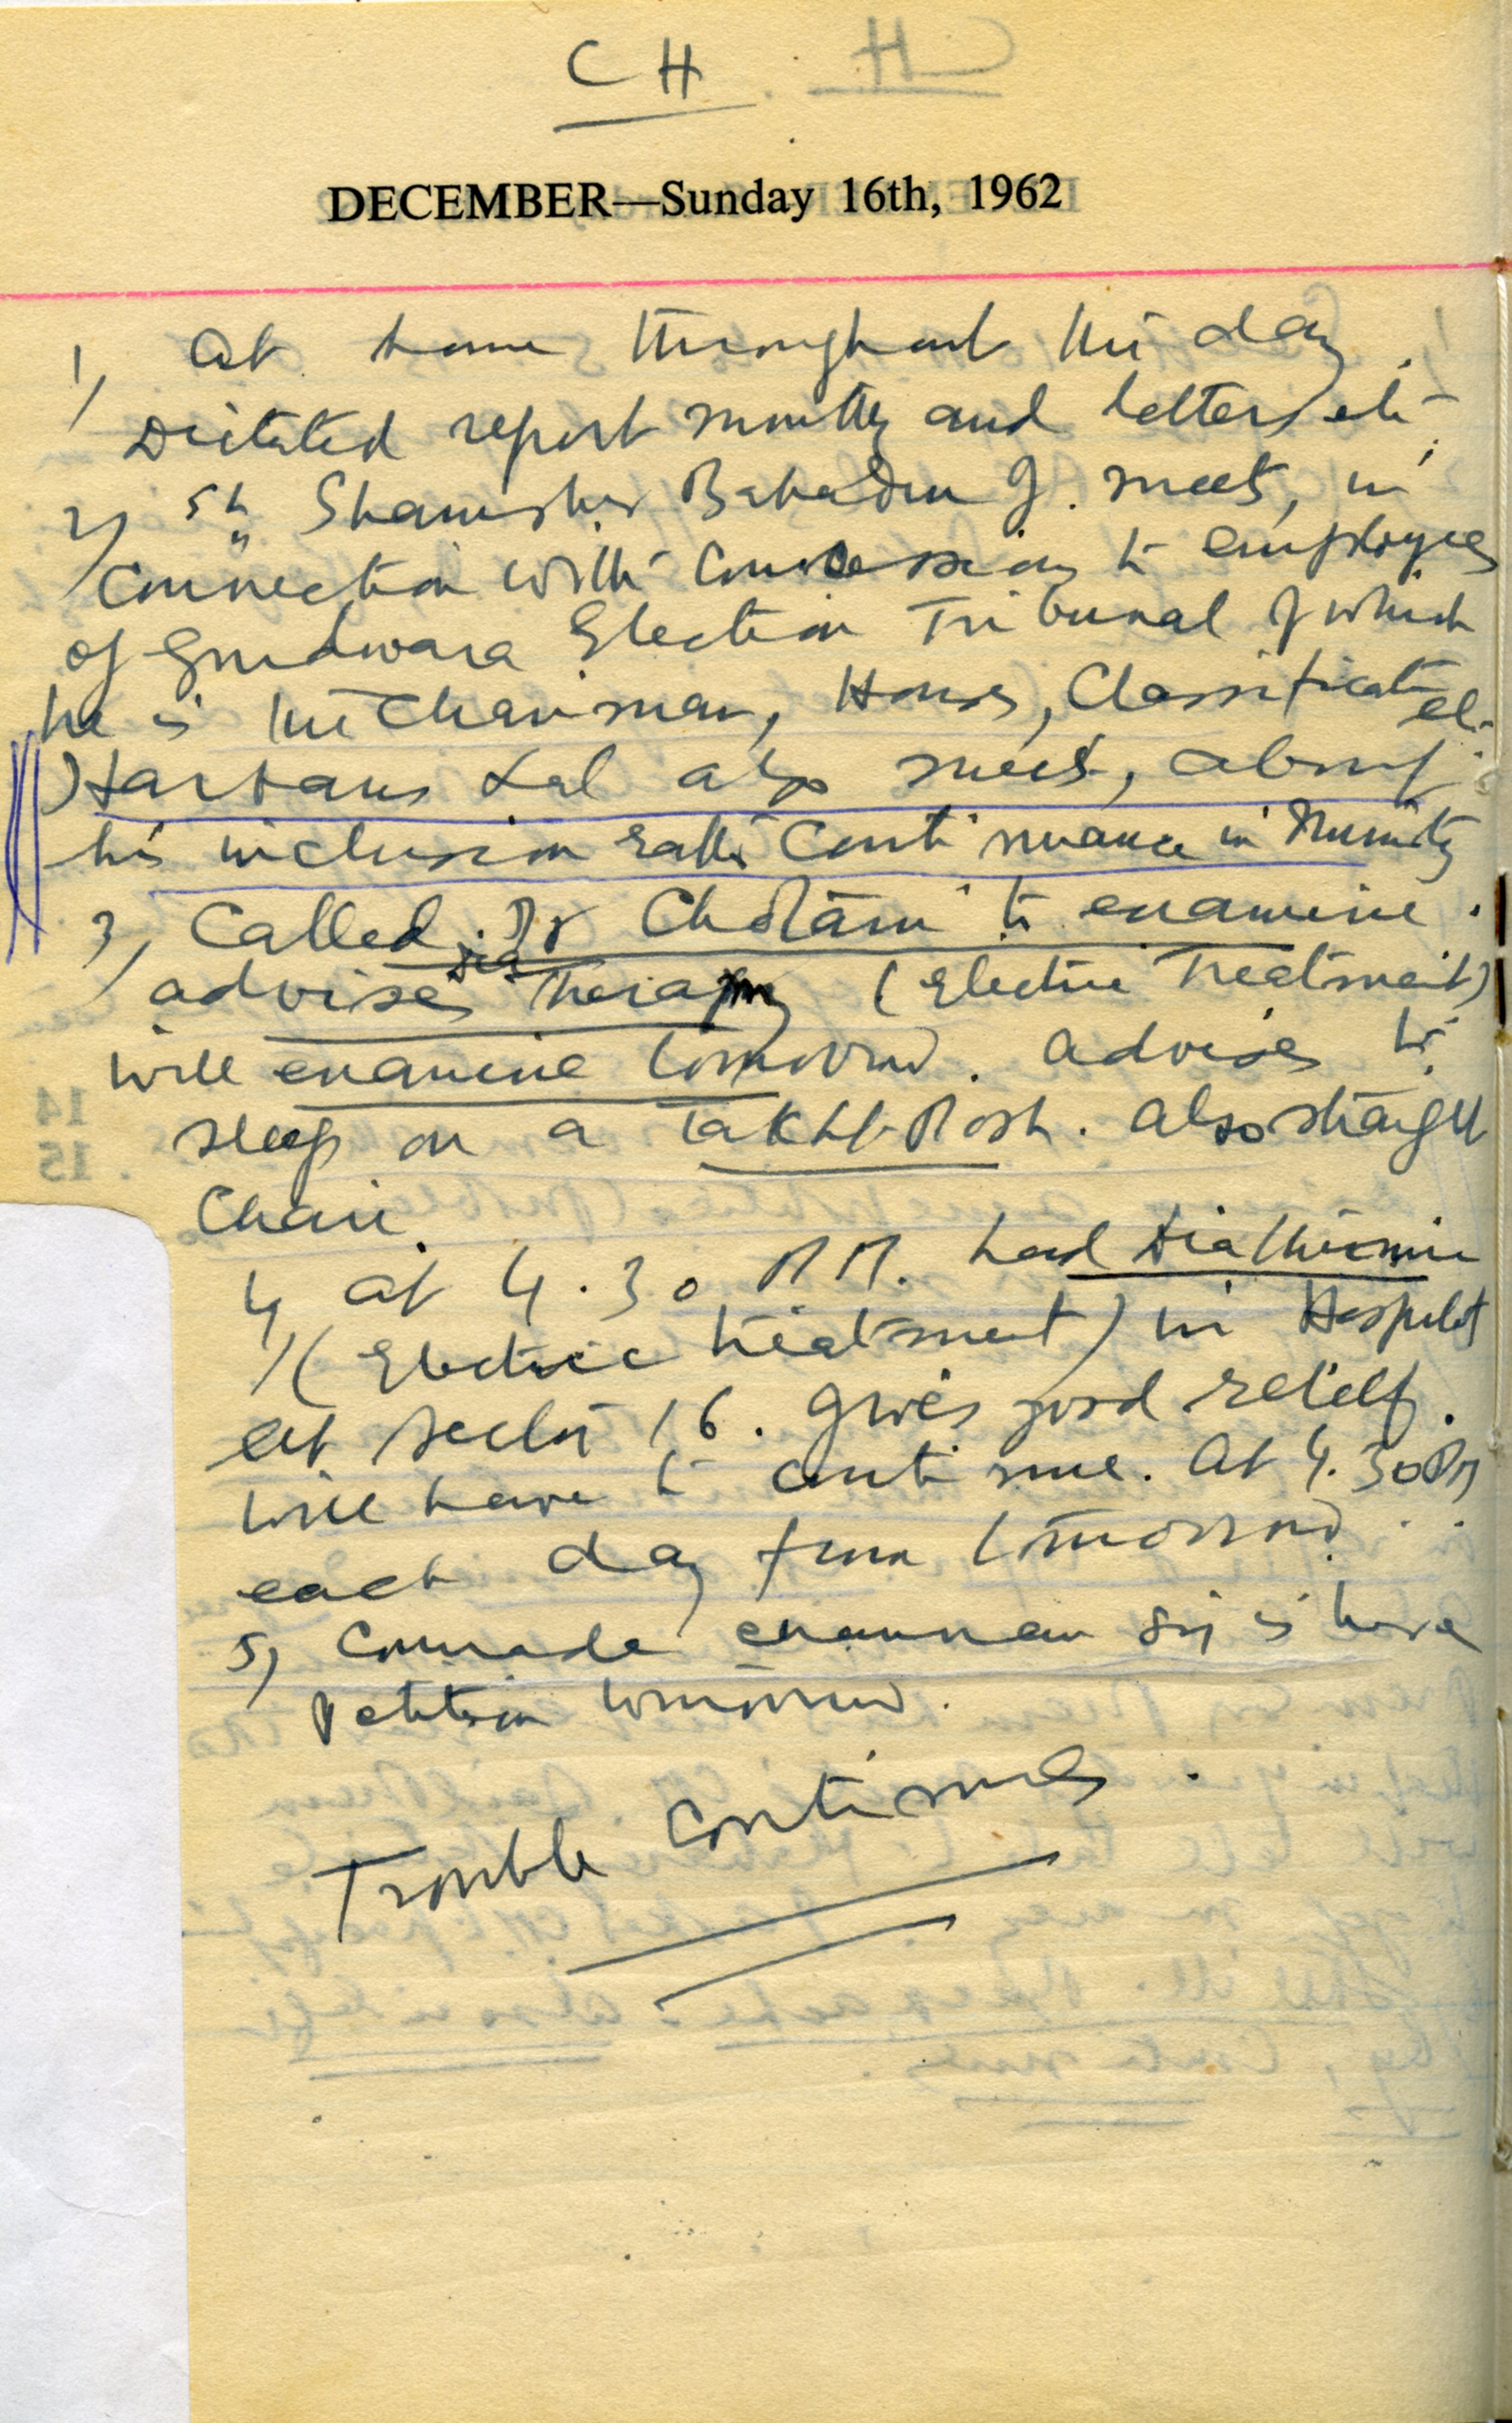 CH
DECEMBER—Sunday 16th, 1962
1) At home throughout the day.
Dictated report monthly and letters etc.
2) Sh. Shamsher Bahadur J. meets, in
connection with concession to employees
of Gurdwara Election Tribunal of which
he is the Chairman, House, Classification
etc.
Harbans Lal also meets, about
his inclusion rather continuance in Ministry
3) Called Dr Chotani to examine.
advises Therapy (Electric Treatment)
will examine tomorrow. Advises to
sleep on a Takhtposh. Also straight
Chair.
4) At 4.30 PM. had Diathermie
(Electric treatment) in Hospital
at Sector 16. Gives good relief.
Will have to continue. At 4.30 PM
each day from tomorrow.
5) Comrade is have
petition tomorrow.
Trouble Continues.